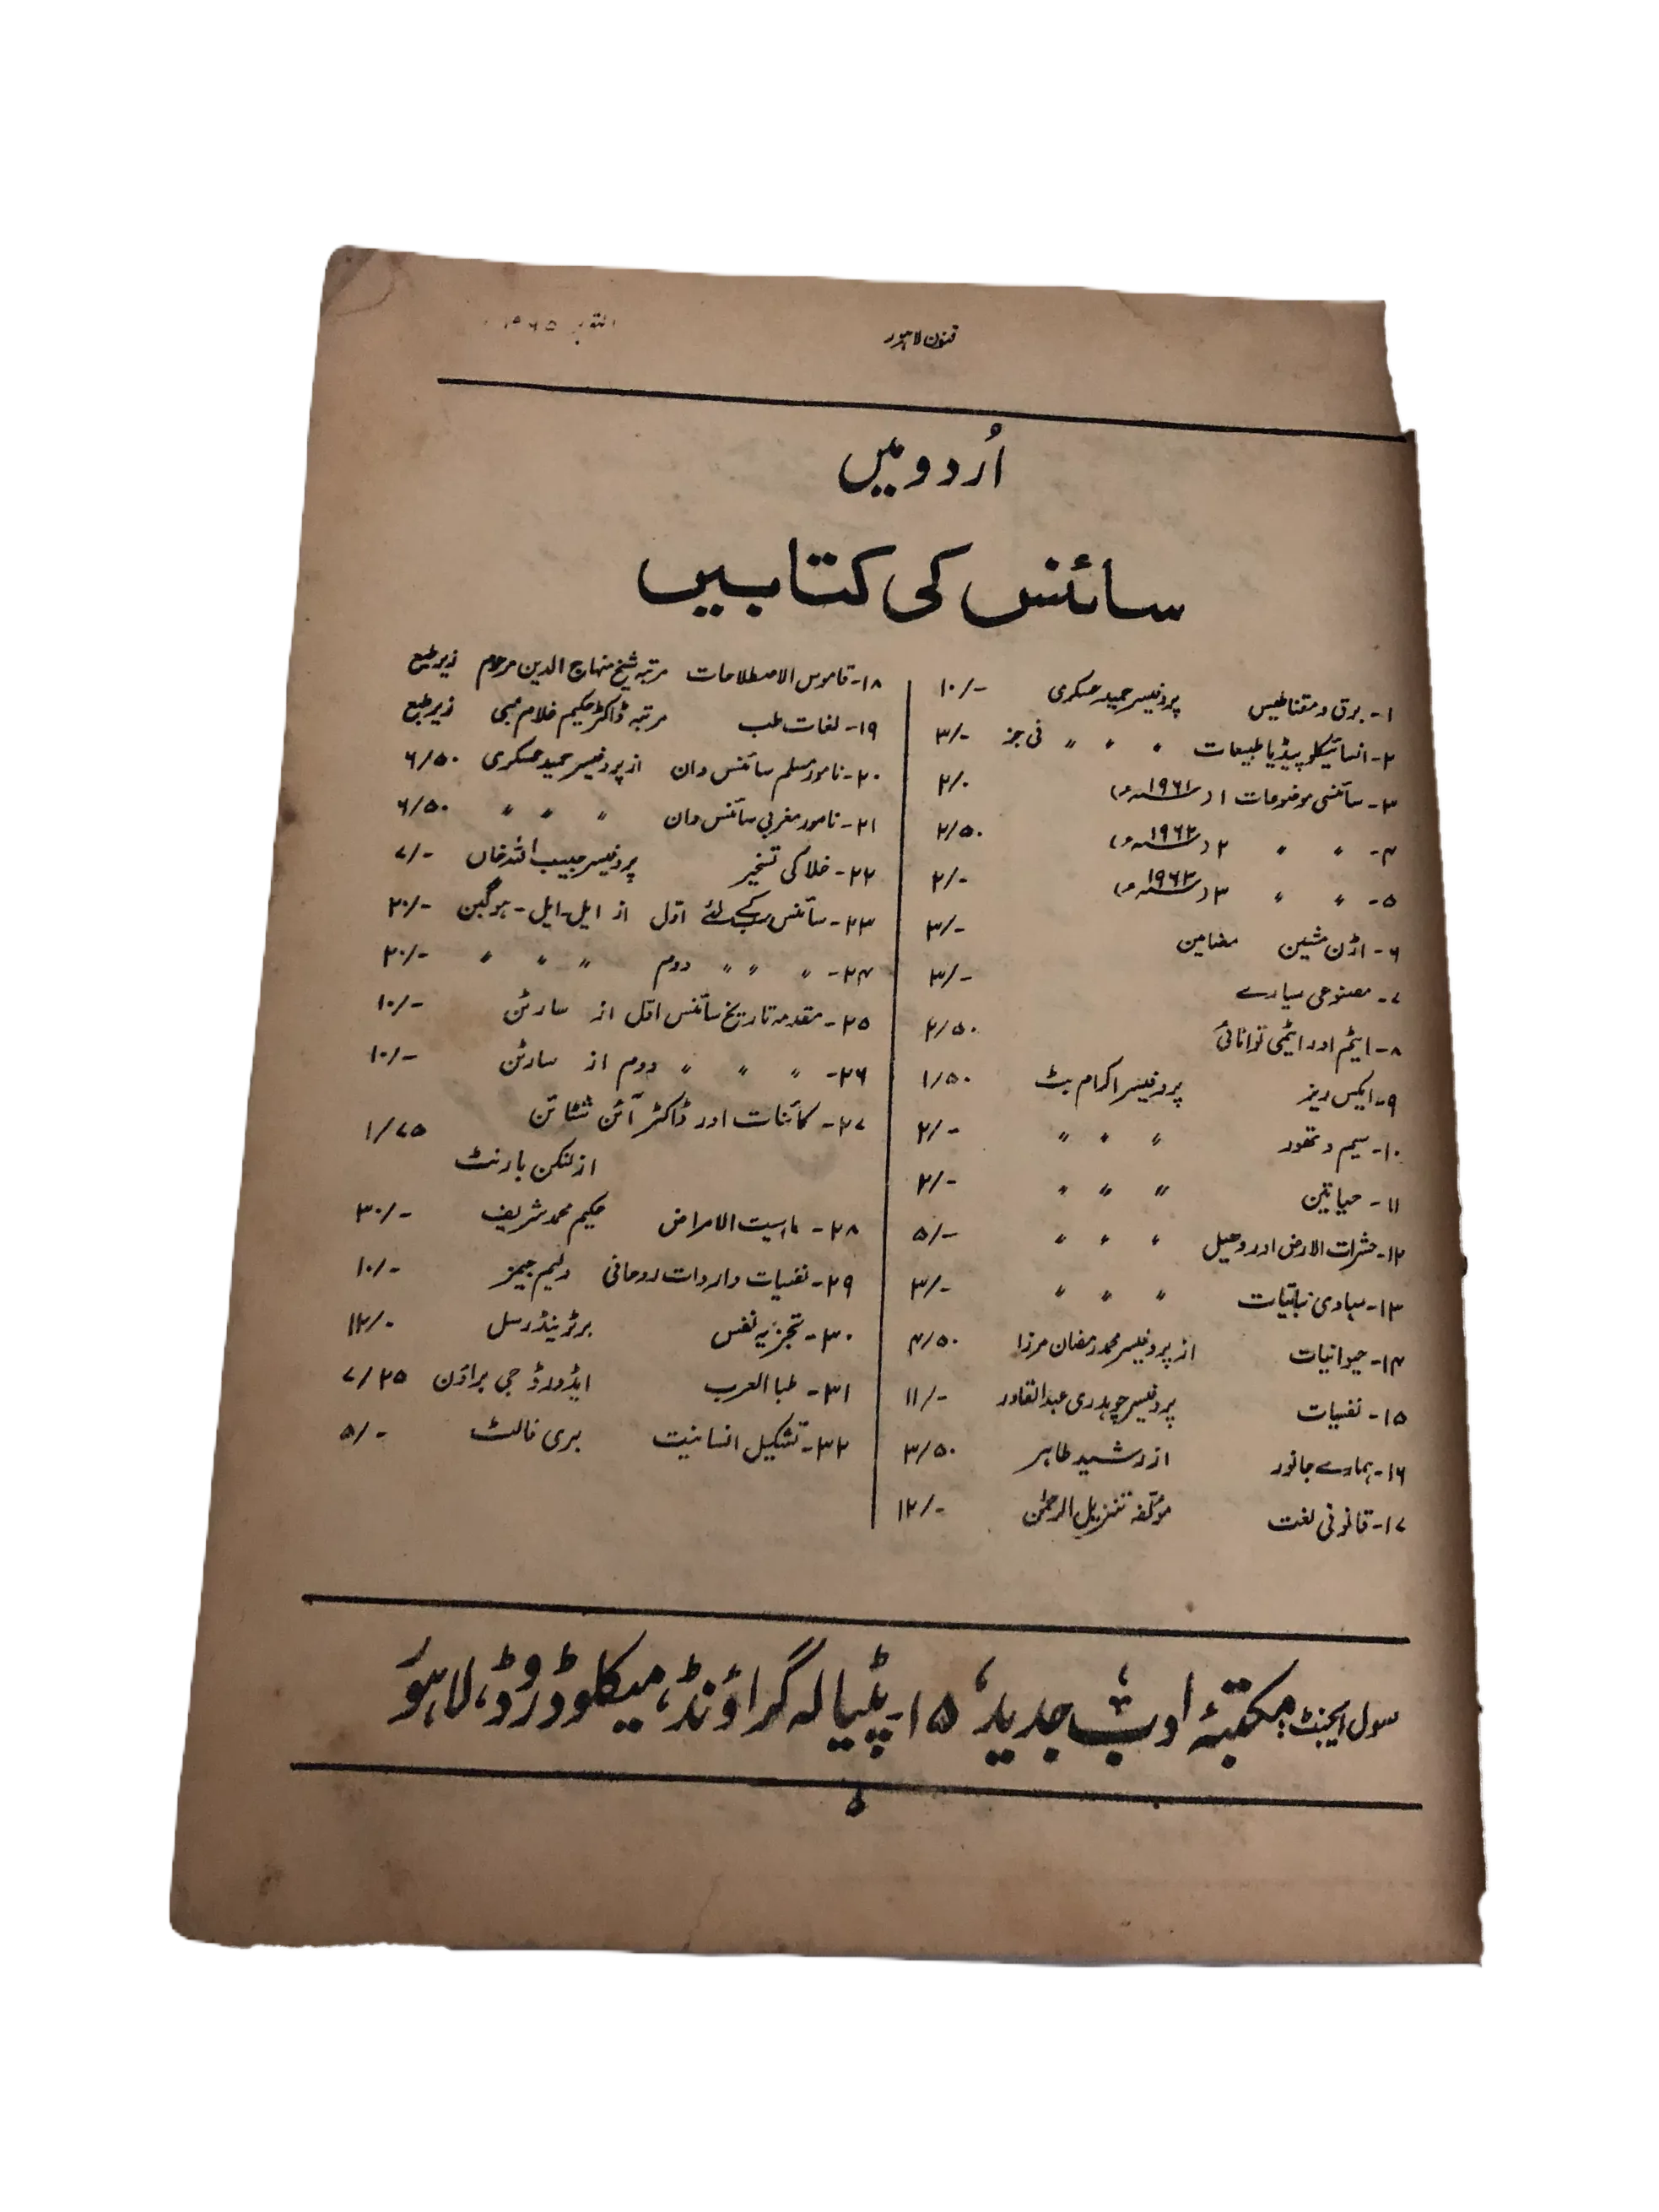 فنون لاہور
اُردو میں
سائنس کی کتابیں
۱- برق و مقناطیس پروفیسر حمید عسکری ۱۰/-
۲- انسائیکلوپیڈیا طبیعات " " " فی جز ۳/-
۳- سائنسی موضوعات ۱ (۱۹۶۱ء) ۲/۰
۴- " " ۲ (۱۹۶۲ء) ۲/۵۰
۵- " " ۳ (۱۹۶۳ء) ۲/-
۶- اڑن مشین مضامین ۳/-
۷- مصنوعی سیارے ۳/-
۸- ایٹم اور ایٹمی توانائی ۲/۵۰
۹- ایکس ریز پروفیسر اکرام بٹ ۱/۵۰
۱۰- سیم و تھور " " " ۲/-
۱۱- حیاتین " " " ۲/-
۱۲- حشرات الارض اور وھیل " " " ۵/-
۱۳- مبادی نباتیات " " " ۳/-
۱۴- حیوانیات از پروفیسر محمد رمضان مرزا ۴/۵۰
۱۵- نفسیات پروفیسر چوہدری عبدالقادر ۱۱/-
۱۶- ہمارے جانور از رشید طاہر ۳/۵۰
۱۷- قانونی لغت مؤلفہ تنزیل الرحمٰن ۱۲/-
۱۸- قاموس الاصطلاحات مرتبہ شیخ منہاج الدین مرحوم زیر طبع
۱۹- لغات طب مرتبہ ڈاکٹر حکیم غلام زیر طبع
۲۰- نامور مسلم سائنس دان از پروفیسر حمید عسکری ۶/۵۰
۲۱- نامور مغربی سائنس دان " " " ۶/۵۰
۲۲- خلا کی تسخیر پروفیسر حبیب اللہ خاں ۷/-
۲۳- سائنس سب کے لئے اوّل از ایل-ایل-ہوگبن ۲۰/-
۲۴- " " " دوم " " " ۲۰/-
۲۵- مقدمہ تاریخ سائنس اوّل از سارٹن ۱۰/-
۲۶- " " " دوم از سارٹن ۱۰/-
۲۷- کائنات اور ڈاکٹر آئن شٹائن
از لنکن بارنٹ ۱/۷۵
۲۸- ماہیت الامراض حکیم محمد شریف ۳۰/-
۲۹- نفسیات واردات روحانی ولیم جیمز ۱۰/-
۳۰- تجزیہ نفس برٹرینڈ رسل ۱۲/۰
۳۱- طبا العرب ایڈورڈ جی براؤن ۷/۲۵
۳۲- تشکیل انسانیت بری فالٹ ۵/-
سول ایجنٹ: مکتبۂ ادبِ جدید، ۱۵-پٹیالہ گراؤنڈ، میکلوڈ روڈ، لاہور
۵